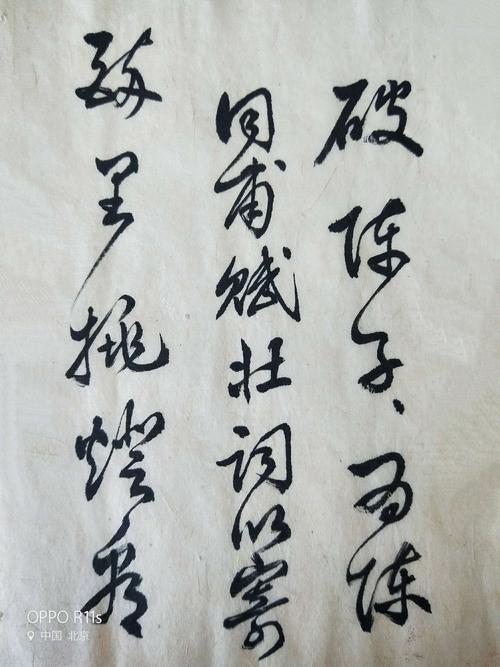 破陣子、为陳
同甫賦壮詞以寄
醉里挑燈看
OPPO R11s
中国 北京